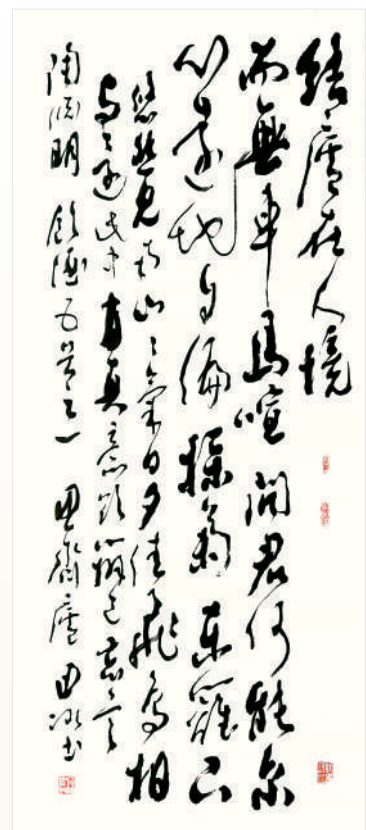 結廬在人境
而無車馬喧問君何能尔
心遠地自偏採菊東籬下
悠然見南山々氣日夕佳飛鳥相
与還此中有真意欲辨已忘言
陶淵明 飲酒五首之一 齋廬 田書